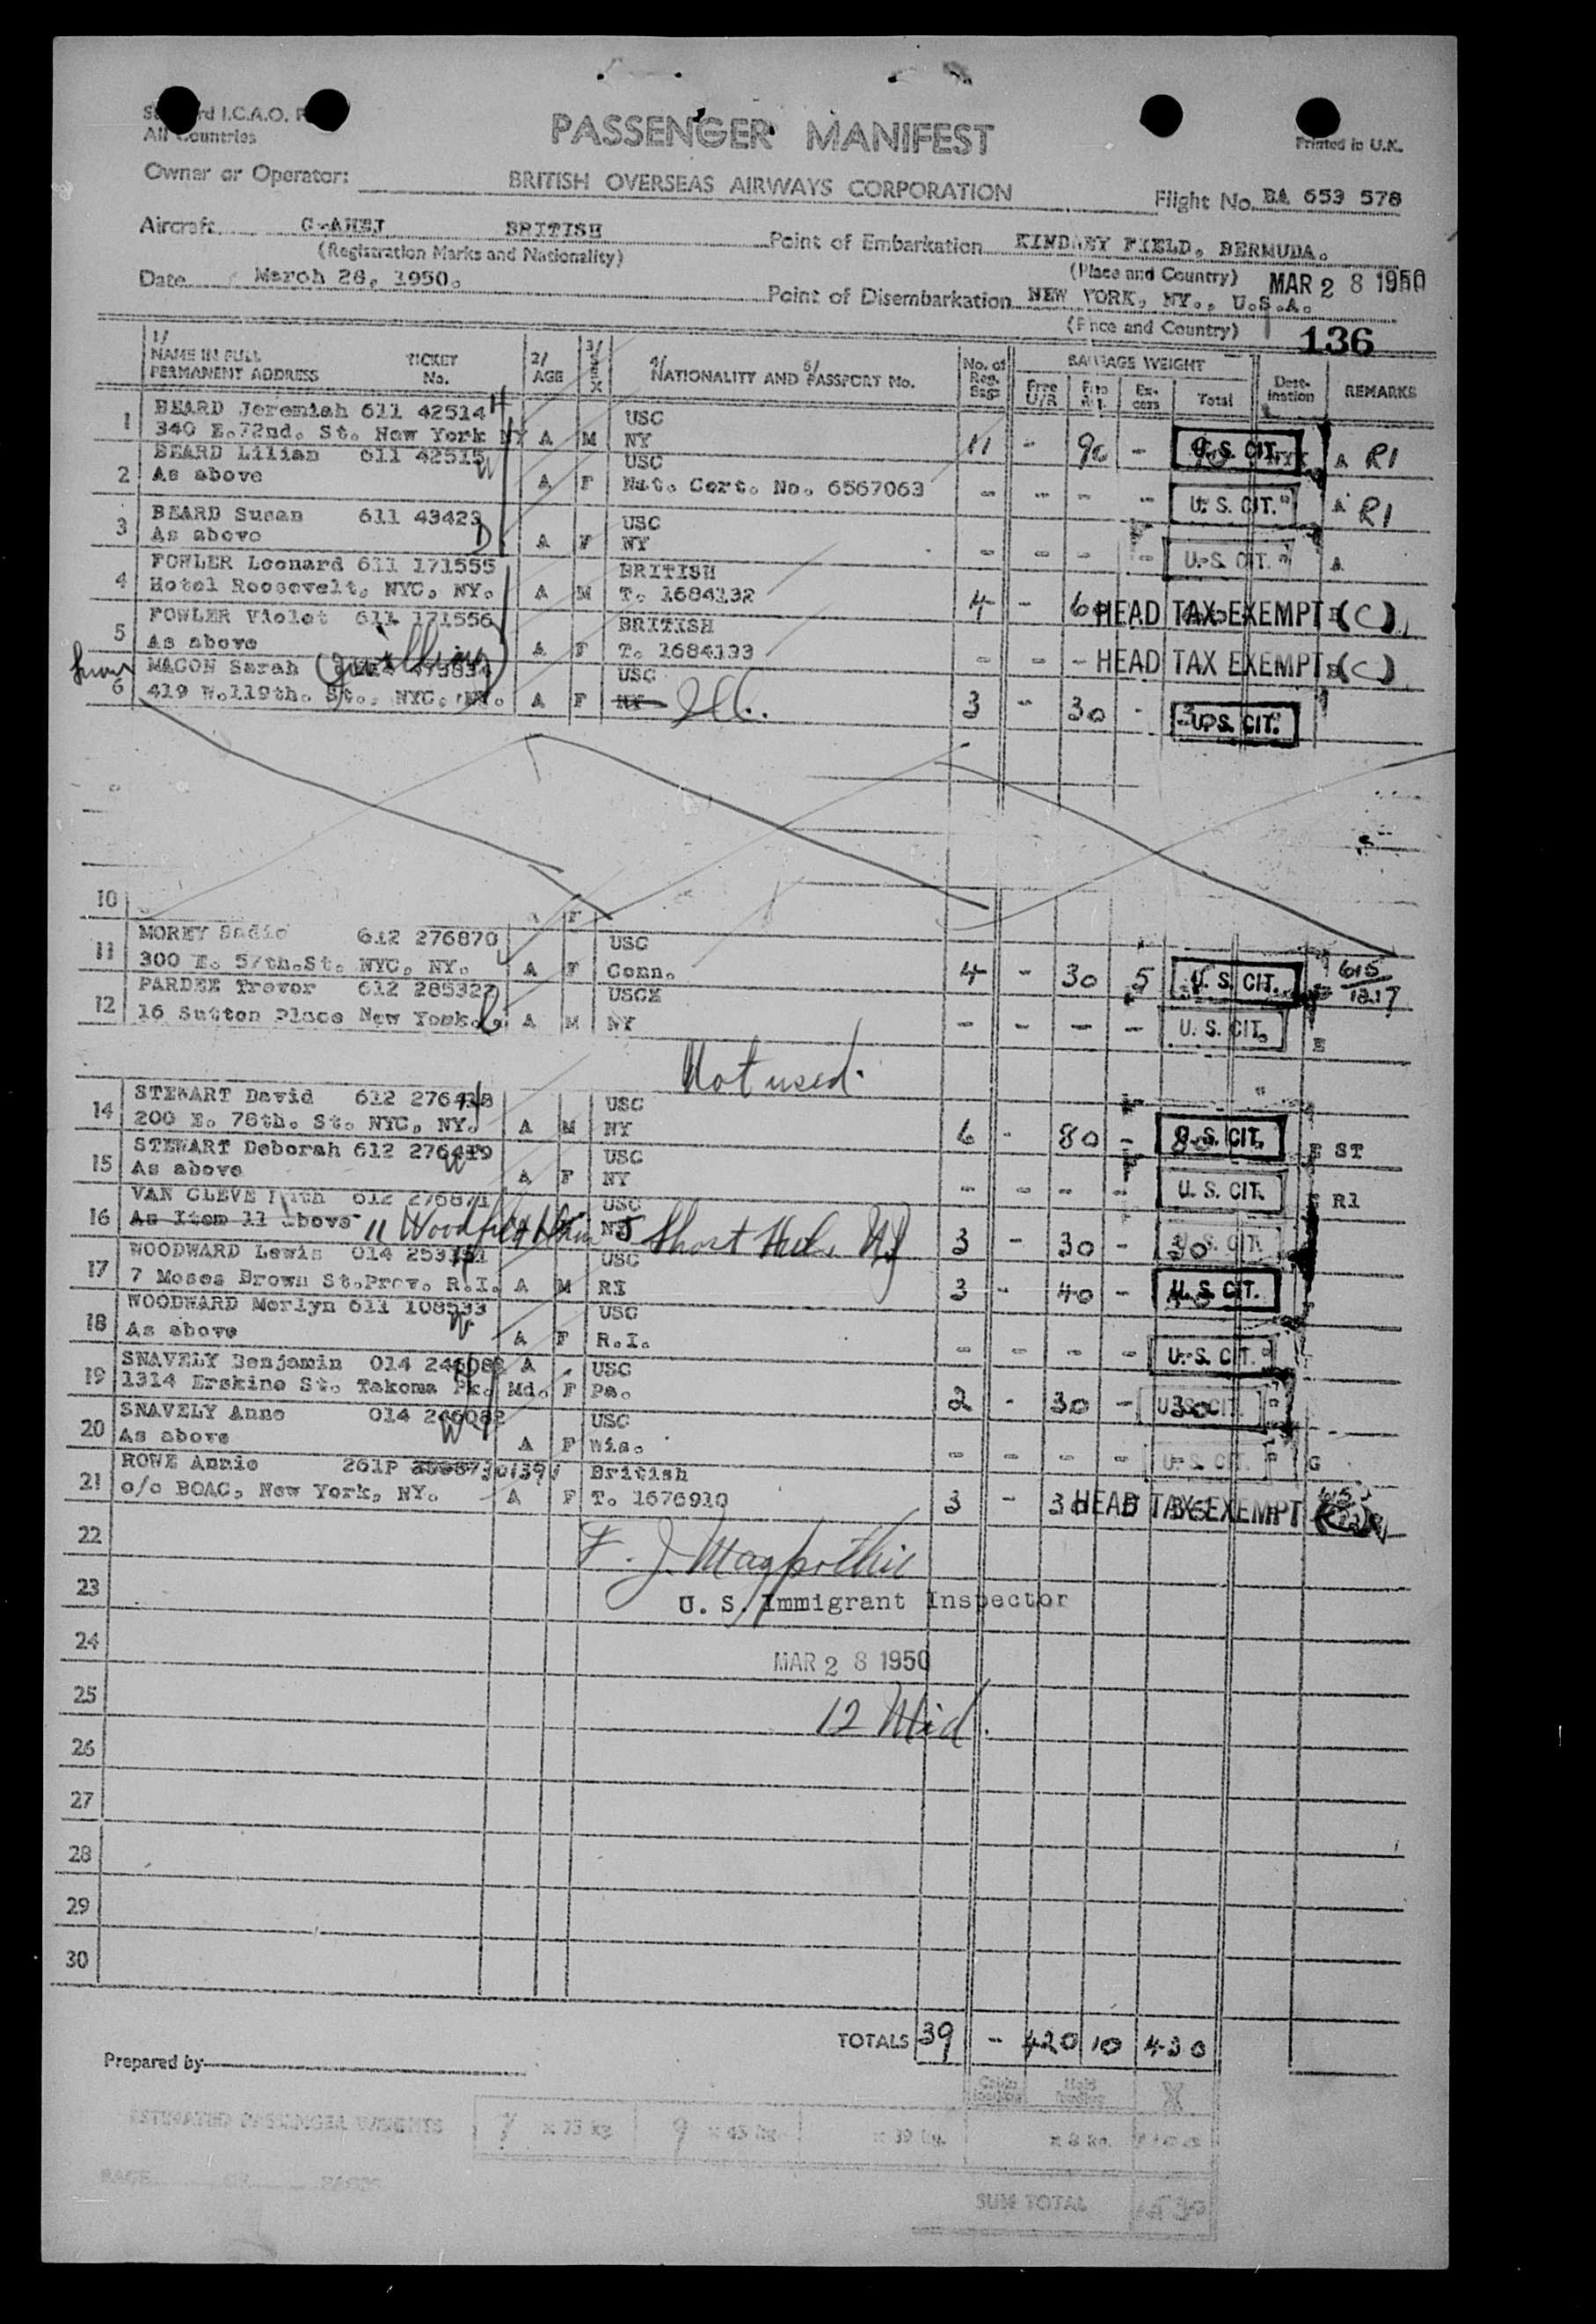 Standard I.C.A.O.
All Countries
PASSENGER MANIFEST
Printed in U.K.
Owner or Operator: BRITISH OVERSEAS AIRWAYS CORPORATION
Flight No. BA 653 578
Aircraft G-AHEJ BRITISH
(Registration Marks and Nationality)
Point of Embarkation KINDLEY FIELD, BERMUDA.
(Place and Country)
Date March 28, 1950.
MAR 28 1950
Point of Disembarkation NEW YORK, NY., U.S.A.
(Place and Country)
136
1/ NAME IN FULL PERMANENT ADDRESS TICKET No. 2/ AGE 3/ SEX 4/ NATIONALITY AND 5/ PASSPORT No. No. of Reg. Bags BAGGAGE WEIGHT Free U/R Free Ex-cess Total Dest-ination REMARKS
BEARD Jeremiah 611 42514 H USC
1 340 E.72nd. St. New York NY A M NY 11 - 90 - U. S. CIT. A R1
BEARD Lilian 611 42515 W USC
2 As above A F Nat. Cert. No. 6567063 - - - - U. S. CIT. A R1
BEARD Susan 611 43423 D USC
3 As above A F NY - - - - U. S. CIT. A
FOWLER Leonard 611 171555 BRITISH
4 Hotel Roosevelt, NYC, NY. A M T. 1684132 4 - HEAD TAX EXEMPT (C)
FOWLER Violet 611 171556 BRITISH
5 As above A F T. 1684133 - - - HEAD TAX EXEMPT (C)
MACON Sarah USC
6 419 W.119th. St., NYC, NY. A F NY 3 - 30 - U. S. CIT.
10 F
MOREY Sadie 612 276870 USC
11 300 E. 57th.St. NYC, NY. A F Conn. 4 - 30 5 U. S. CIT. 615
PARDEE Trevor 612 285322 USCX
12 16 Sutton Place New York. A M NY - - - - U. S. CIT. E
Not used.
STEWART David 612 276418 H USC
14 200 E. 78th. St. NYC, NY. A M NY 6 - 80 - U. S. CIT. E ST
STEWART Deborah 612 276419 W USC
15 As above A F NY - - - - U. S. CIT. R1
VAN CLEVE 612 276871 USC
16 As Item 11 above 11 Short Hills NJ 3 - 30 - U. S. CIT.
WOODWARD Lewis 014 253151 USC
17 7 Moses Brown St.Prov. R.I. A M RI 3 - 40 - U. S. CIT.
WOODWARD Merlyn 611 108533 W USC
18 As above A F R.I. - - - - U. S. CIT.
SNAVELY Benjamin 014 246083 A USC
19 1314 Erskine St. Takoma Pk. Md. F Pa. 2 - 30 - U. S. CIT.
SNAVELY Anne 014 246082 W USC
20 As above A F Wis. - - - - U. S. CIT. G
ROWE Annie 261P British
21 c/o BOAC, New York, NY. A F T. 1676910 3 - HEAD TAX EXEMPT
22
23
U. S. Immigrant Inspector
24
MAR 28 1950
25
12 Mid.
26
27
28
29
30
TOTALS 39 - 420 10 430
Prepared by
Cabin loading Hold loading
ESTIMATED PASSENGER WEIGHTS 7 x 75 kg. 9 x 45 kg. x 39 kg. x 8 kg.
PAGE OF PAGES
SUM TOTAL